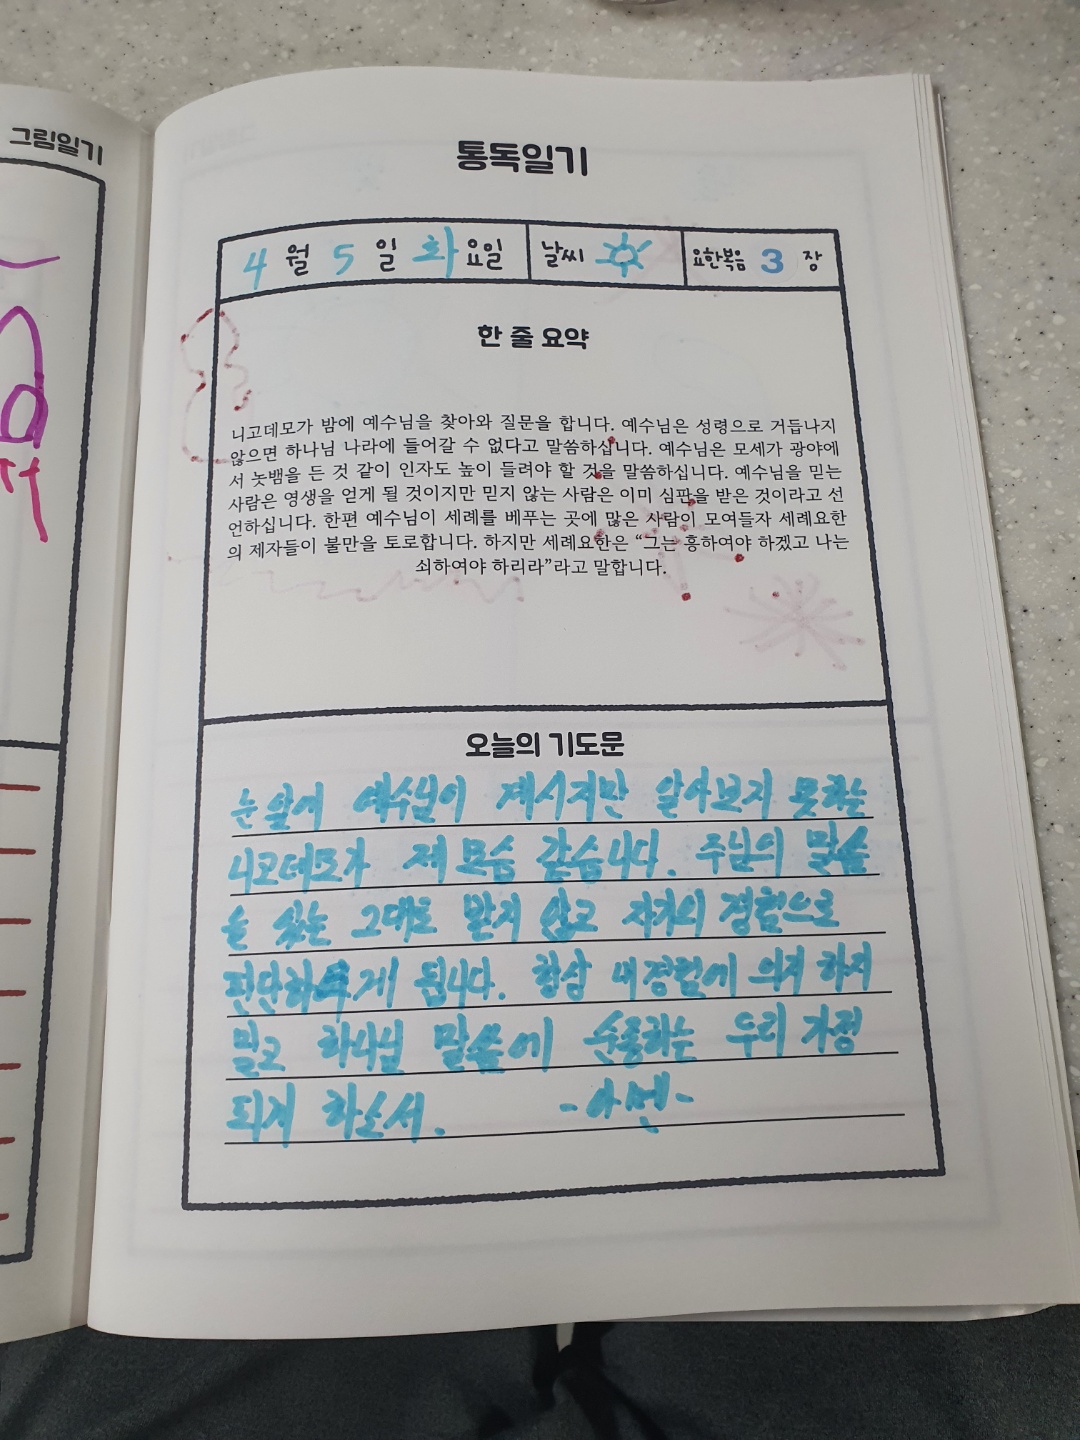 그림일기
통독일기
4 월 5 일 화 요일 날씨 요한복음 3 장
한 줄 요약
니고데모가 밤에 예수님을 찾아와 질문을 합니다. 예수님은 성령으로 거듭나지
않으면 하나님 나라에 들어갈 수 없다고 말씀하십니다. 예수님은 모세가 광야에
서 놋뱀을 든 것 같이 인자도 높이 들려야 할 것을 말씀하십니다. 예수님을 믿는
사람은 영생을 얻게 될 것이지만 믿지 않는 사람은 이미 심판을 받은 것이라고 선
언하십니다. 한편 예수님이 세례를 베푸는 곳에 많은 사람이 모여들자 세례요한
의 제자들이 불만을 토로합니다. 하지만 세례요한은 “그는 흥하여야 하겠고 나는
쇠하여야 하리라”라고 말합니다.
오늘의 기도문
눈 앞에 예수님이 계시지만 알아보지 못하는
니고데모가 제 모습 같습니다. 주님의 말씀
을 있는 그대로 받지 않고 자기의 경험으로
판단하게 됩니다. 항상 내 경험에 의지 하지
말고 하나님 말씀에 순종하는 우리 가정
되게 하소서. -아멘-